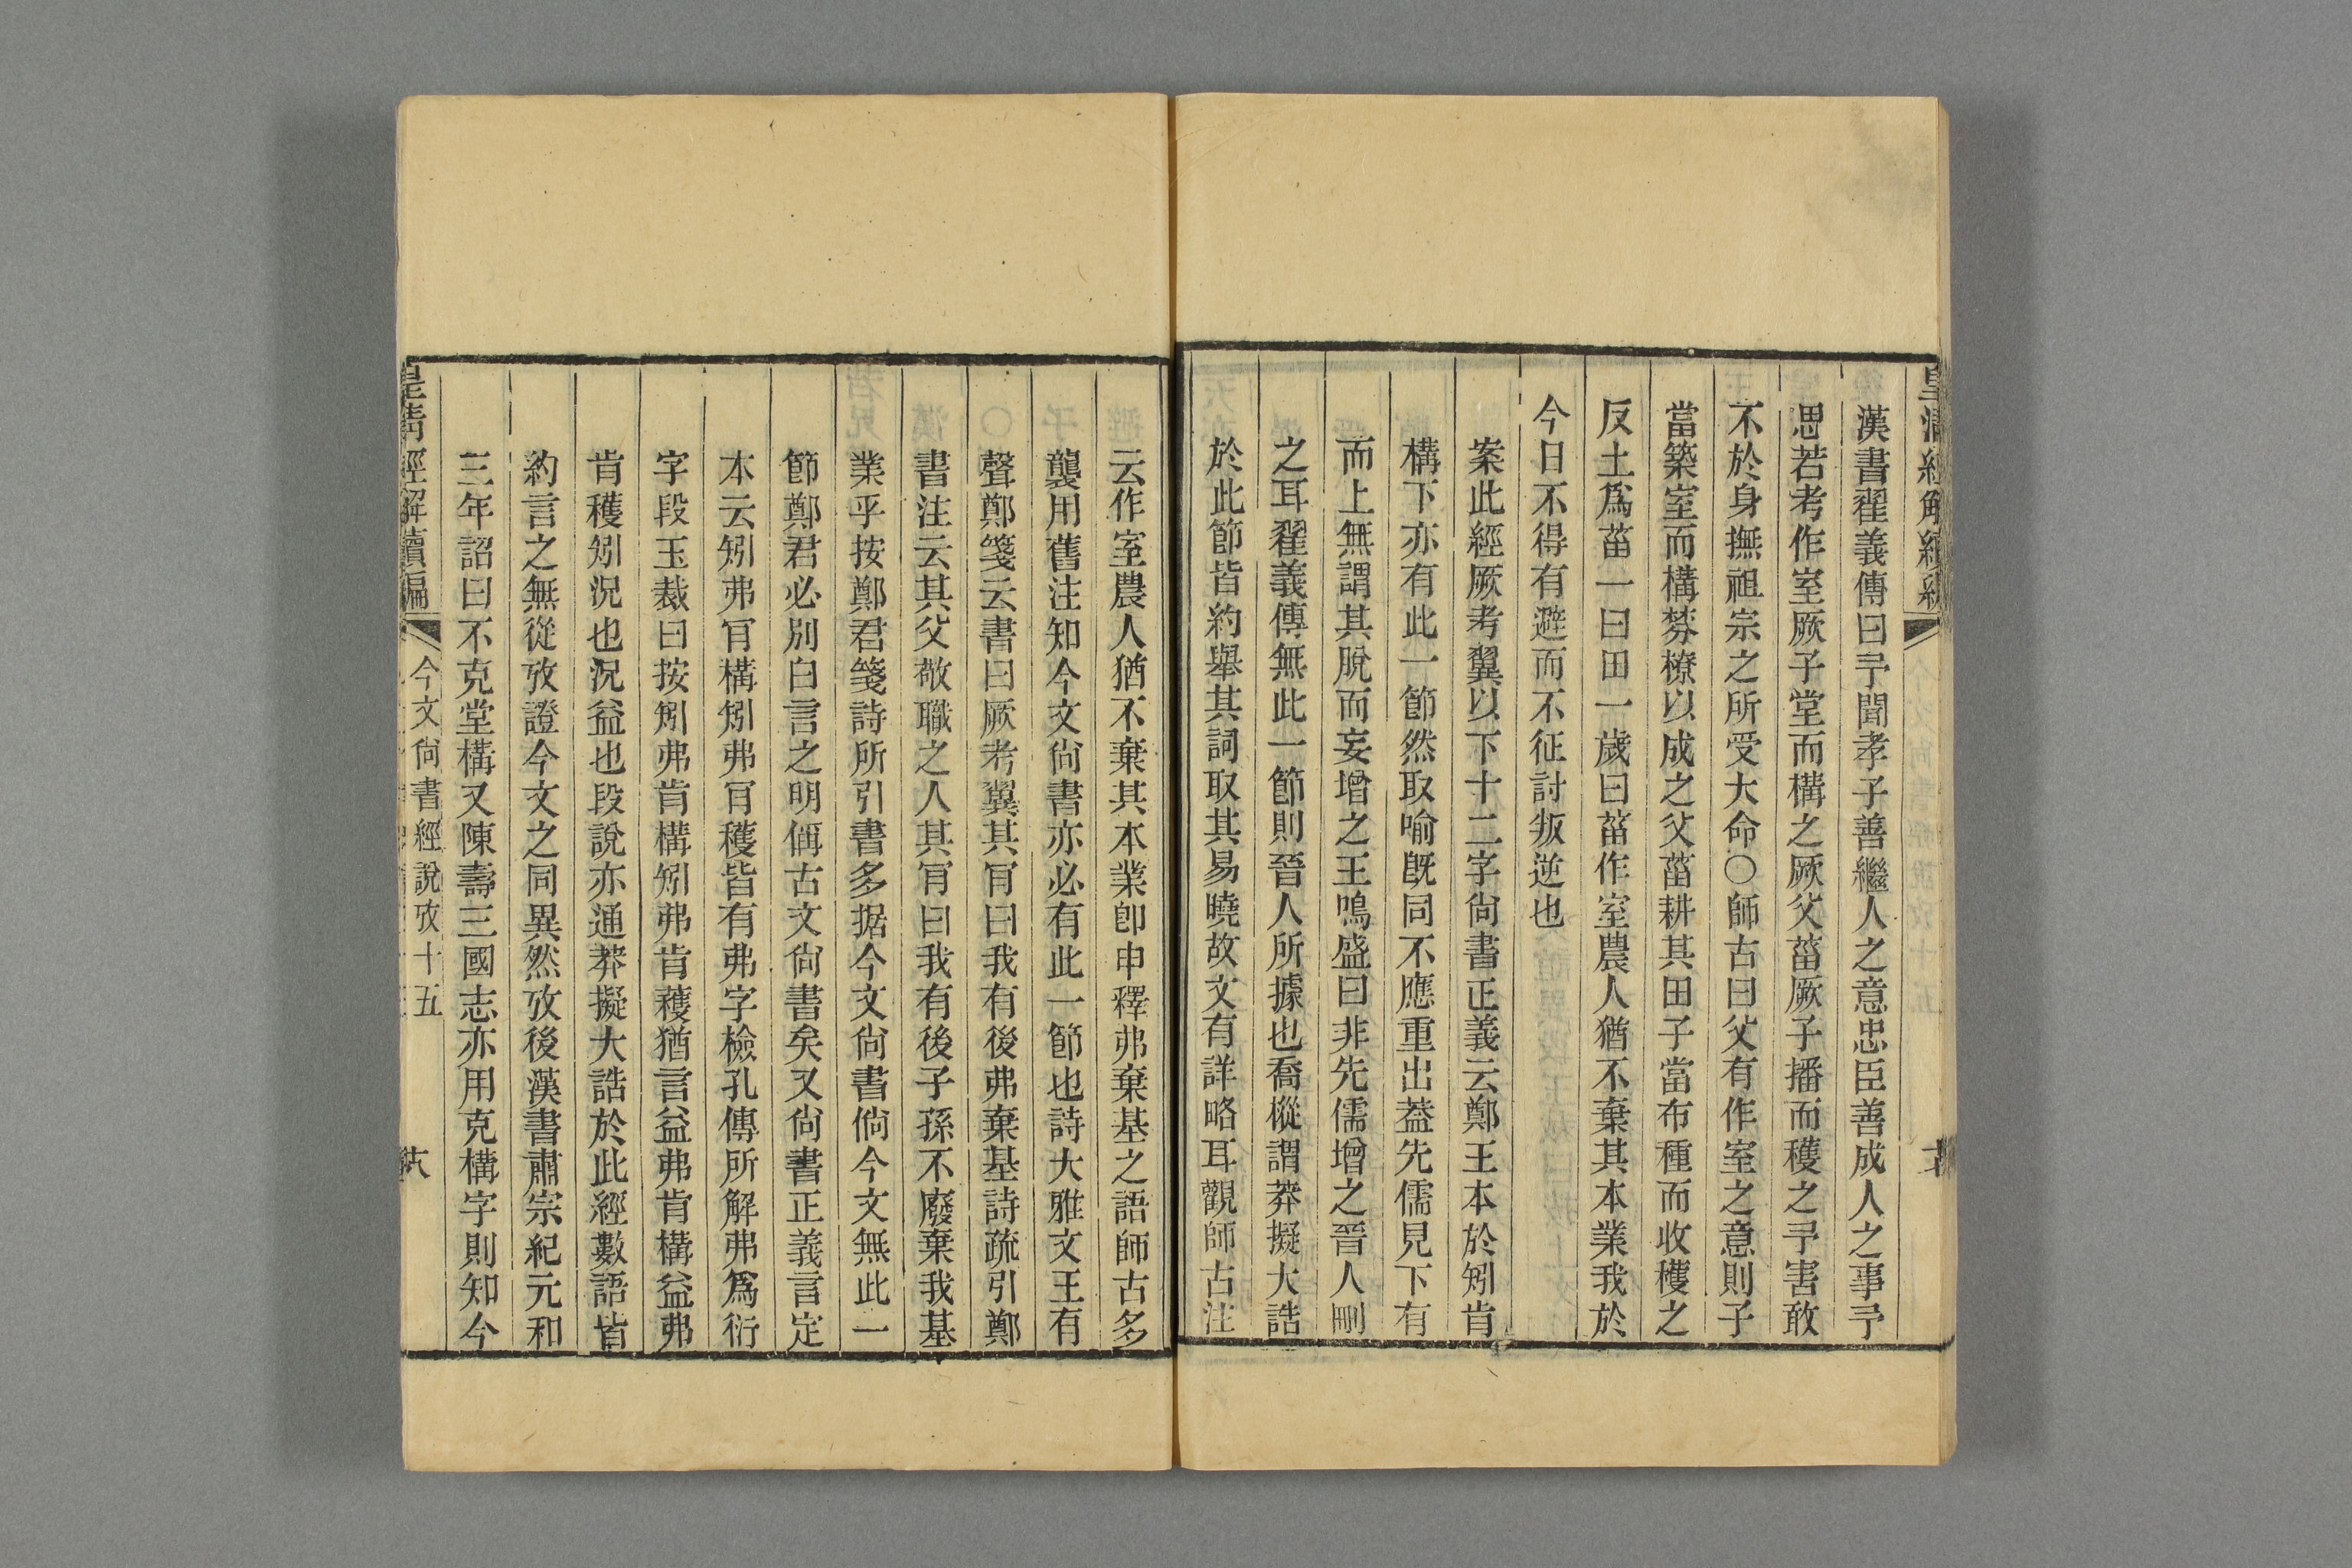 皇清經解續編
漢書翟義傳曰予聞孝子善繼人之意忠臣善成人之事予
思若考作室厥子堂而構之厥父菑厥子播而穫之予害敢
不於身撫祖宗之所受大命〇師古曰父有作室之意則子
當築室而構棼橑以成之父菑耕其田子當布種而收穫之
反土爲菑一曰田一歲曰菑作室農人猶不棄其本業我於
今日不得有避而不征討叛逆也
案此經厥考翼以下十二字尙書正義云鄭王本於矧肯
構下亦有此一節然取喻旣同不應重出葢先儒見下有
而上無謂其脫而妄增之王鳴盛曰非先儒增之晉人刪
之耳翟義傳無此一節則晉人所據也喬樅謂莽擬大誥
於此節皆約舉其詞取其易曉故文有詳略耳觀師古注
云作室農人猶不棄其本業卽申釋弗棄基之語師古多
襲用舊注知今文尙書亦必有此一節也詩大雅文王有
聲鄭箋云書曰厥考翼其肎曰我有後弗棄基詩疏引鄭
書注云其父敬職之人其肎曰我有後子孫不廢棄我基
業乎按鄭君箋詩所引書多据今文尙書倘今文無此一
節鄭君必別白言之明偁古文尙書矣又尙書正義言定
本云矧弗肎構矧弗肎穫皆有弗字檢孔傳所解弗爲衍
字段玉裁曰按矧弗肯構矧弗肯穫猶言益弗肯構益弗
肯穫矧況也況益也段說亦通莽擬大誥於此經數語皆
約言之無從攷證今文之同異然攷後漢書肅宗紀元和
三年詔曰不克堂構又陳壽三國志亦用克構字則知今
皇清經解續編 今文尙書經說攷十五 六